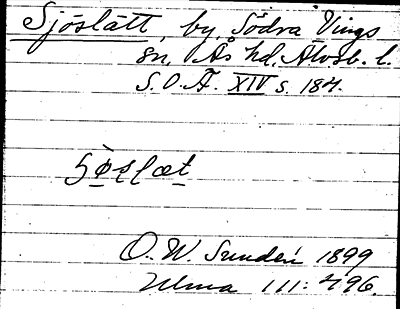 Sjöslätt, by, Södra Vings
sn, Ås hd, Älvsb. l.
S.O.Ä. XIV s. 184.
O. W. Sundén 1899
Ulma 111: 496.